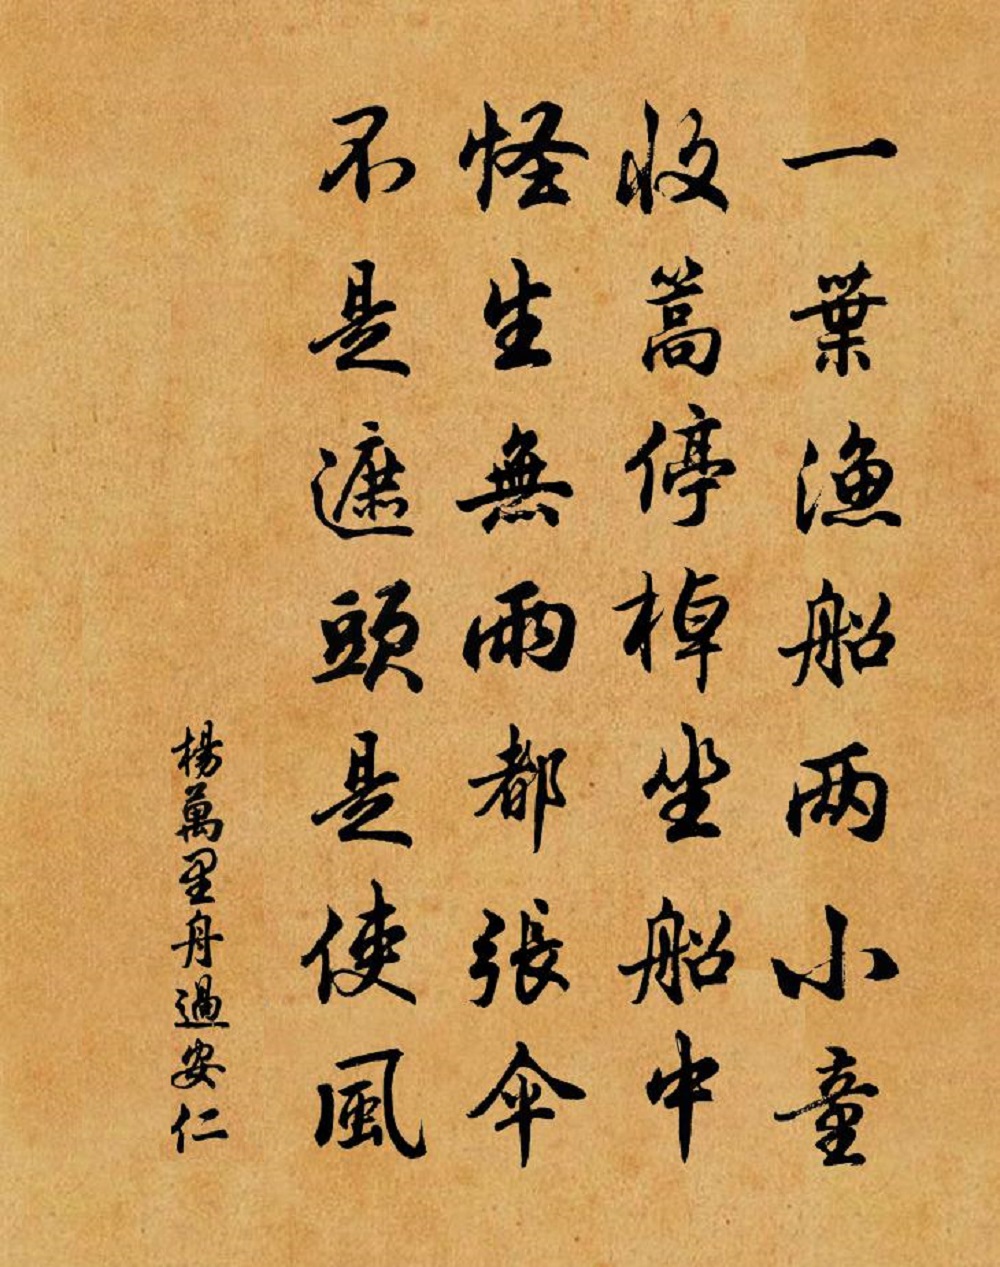 一葉漁船两小童
收篙停棹坐船中
怪生無雨都張伞
不是遮頭是使風
楊萬里舟過安仁